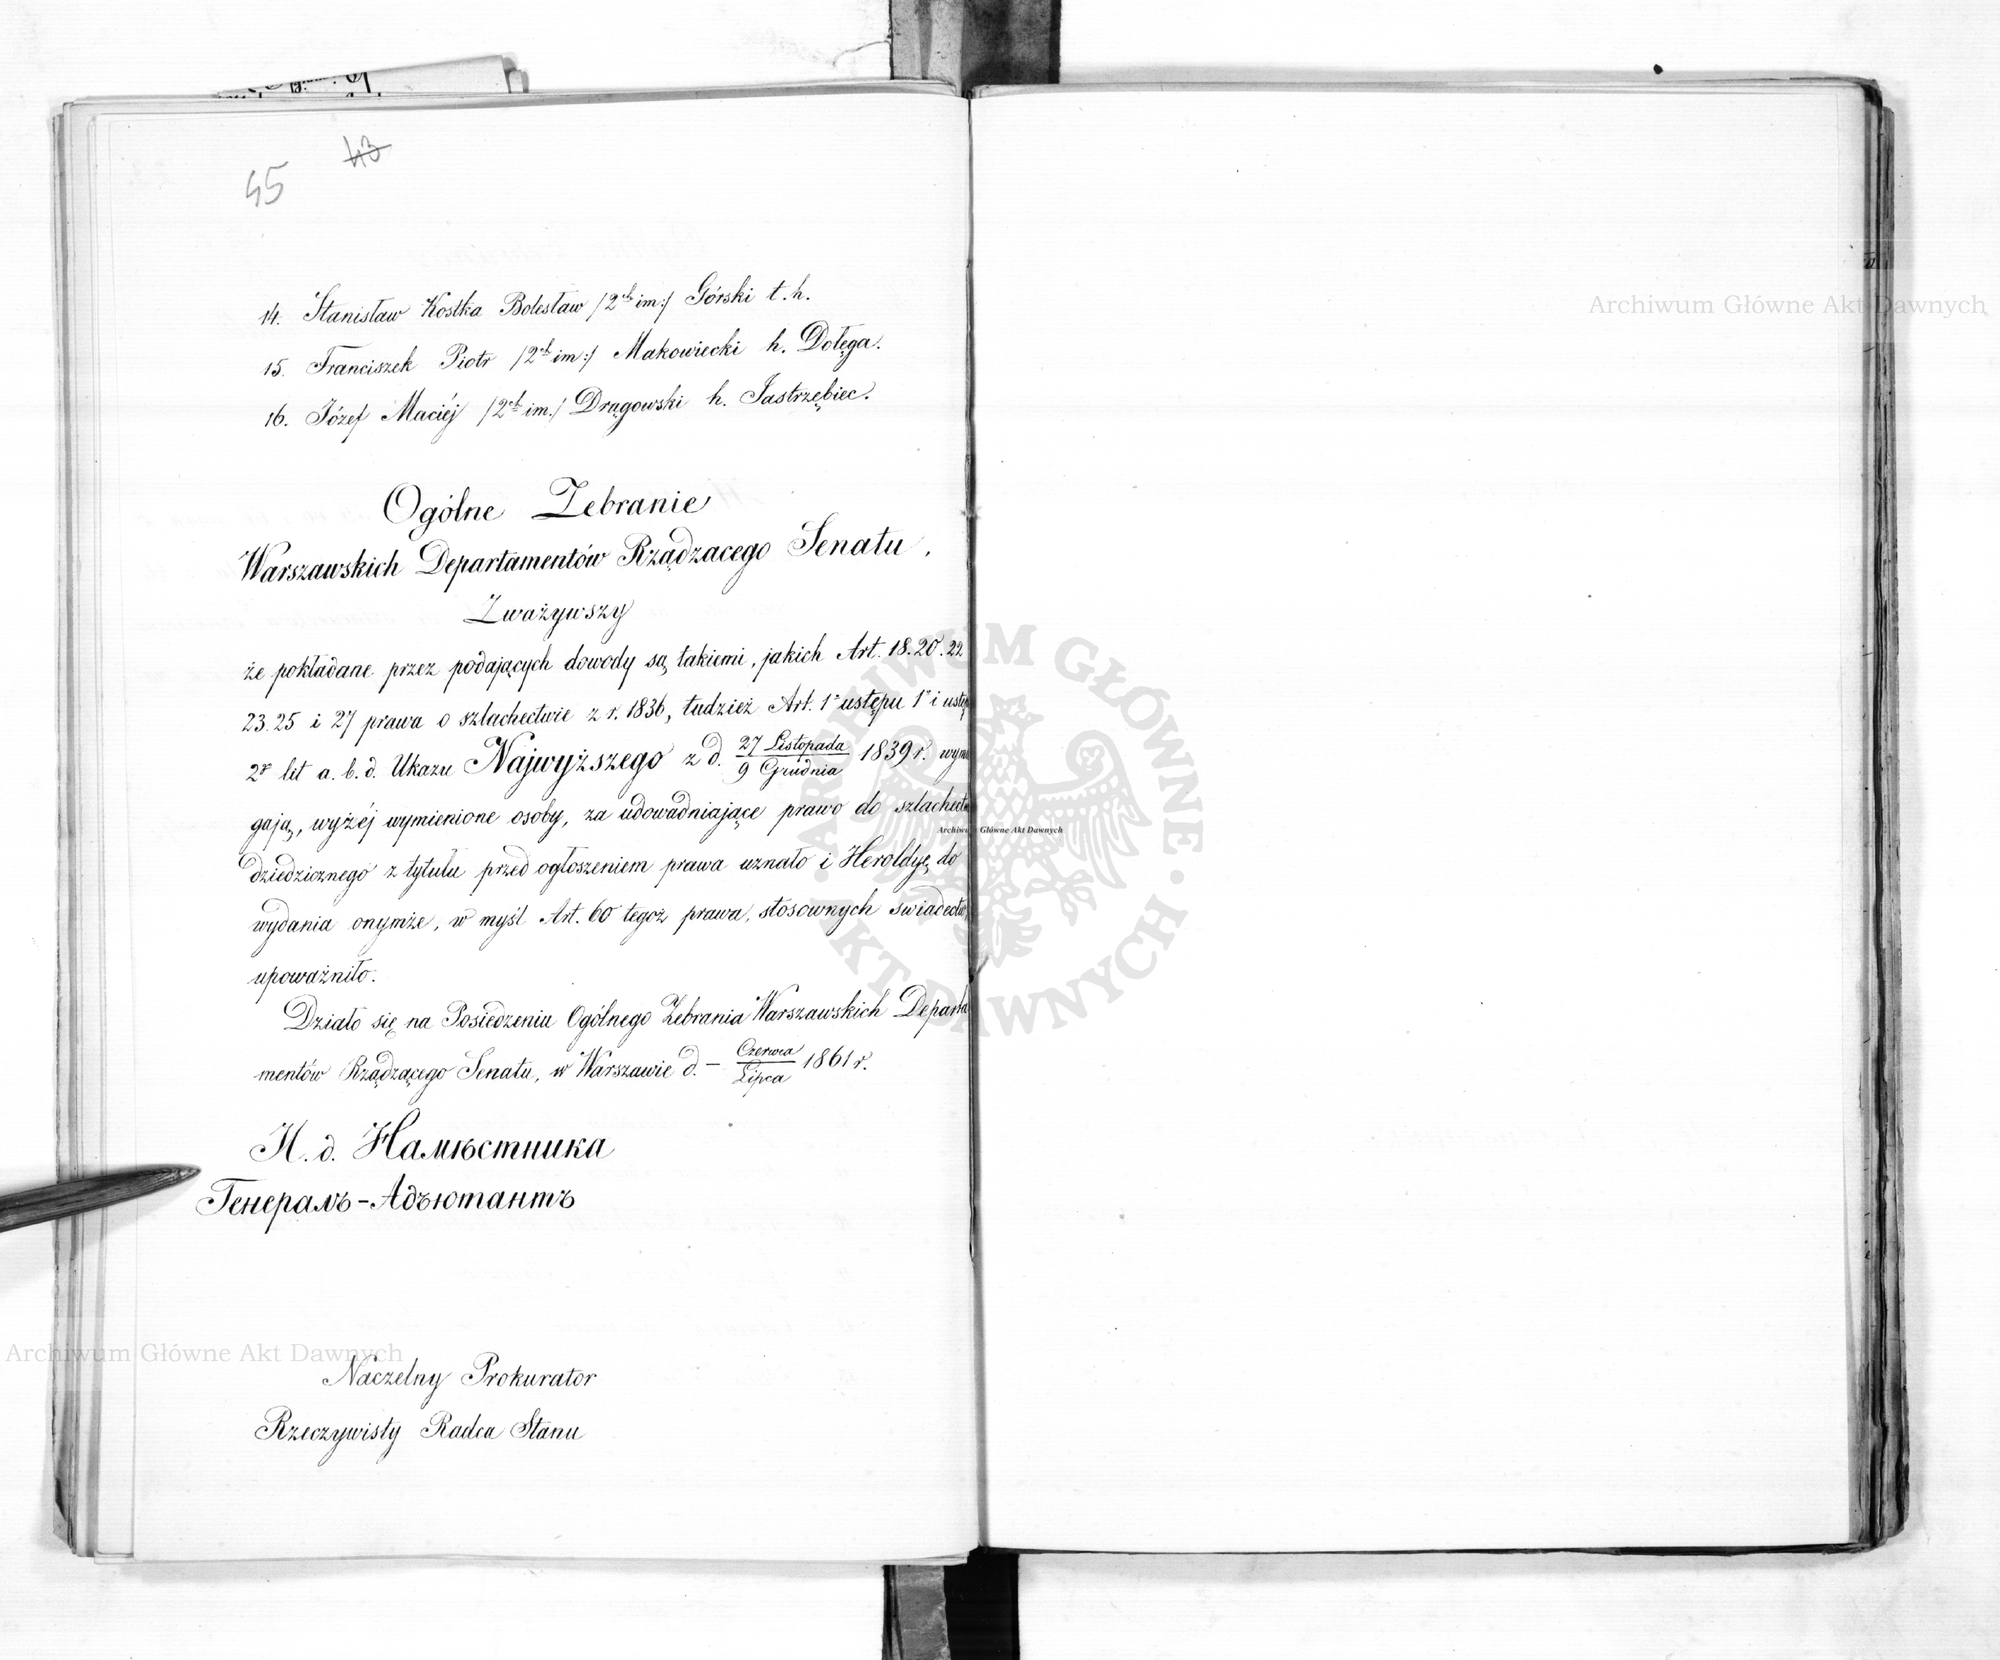 45 43
14. Stanisław Kostka Bolesław /2ch im:/ Górski t. h.
15. Franciszek Piotr /2ch im:/ Makowiecki h. Dołęga.
16. Józef Maciéj /2ch im./ Drągowski h. Jastrzębiec.
Ogólne Zebranie
Warszawskich Departamentów Rządzacego Senatu.
Zważywszy
że pokładane przez podających dowody są takiemi, jakich Art. 18. 20. 22
23. 25 i 27 prawa o szlachectwie z r. 1836, tudzież Art. 1o ustępu 1o i ustę
2o lit a. b. d. Ukazu Najwyższego z d. 27 Listopada / 9 Grudnia 1839 r. wyma
gają, wyżéj wymienione osoby, za udowadniające prawo do szlachectw
dziedzicznego z tytułu przed ogłoszeniem prawa uznało i Heroldyę do
wydania onymże, w myśl Art. 60 tegoż prawa, stosownych swiadectw
upoważniło.
Działo się na Posiedzeniu Ogólnego Zebrania Warszawskich Departa
mentów Rządzącego Senatu, w Warszawie d. — Czerwca / Lipca 1861 r.
И. д. Намѣстника
Генералъ-Адъютантъ
Naczelny Prokurator
Rzeczywisty Radca Stanu
Archiwum Główne Akt Dawnych
Archiwum Główne Akt Dawnych
Archiwum Główne Akt Dawnych
ARCHIWUM GŁÓWNE AKT DAWNYCH